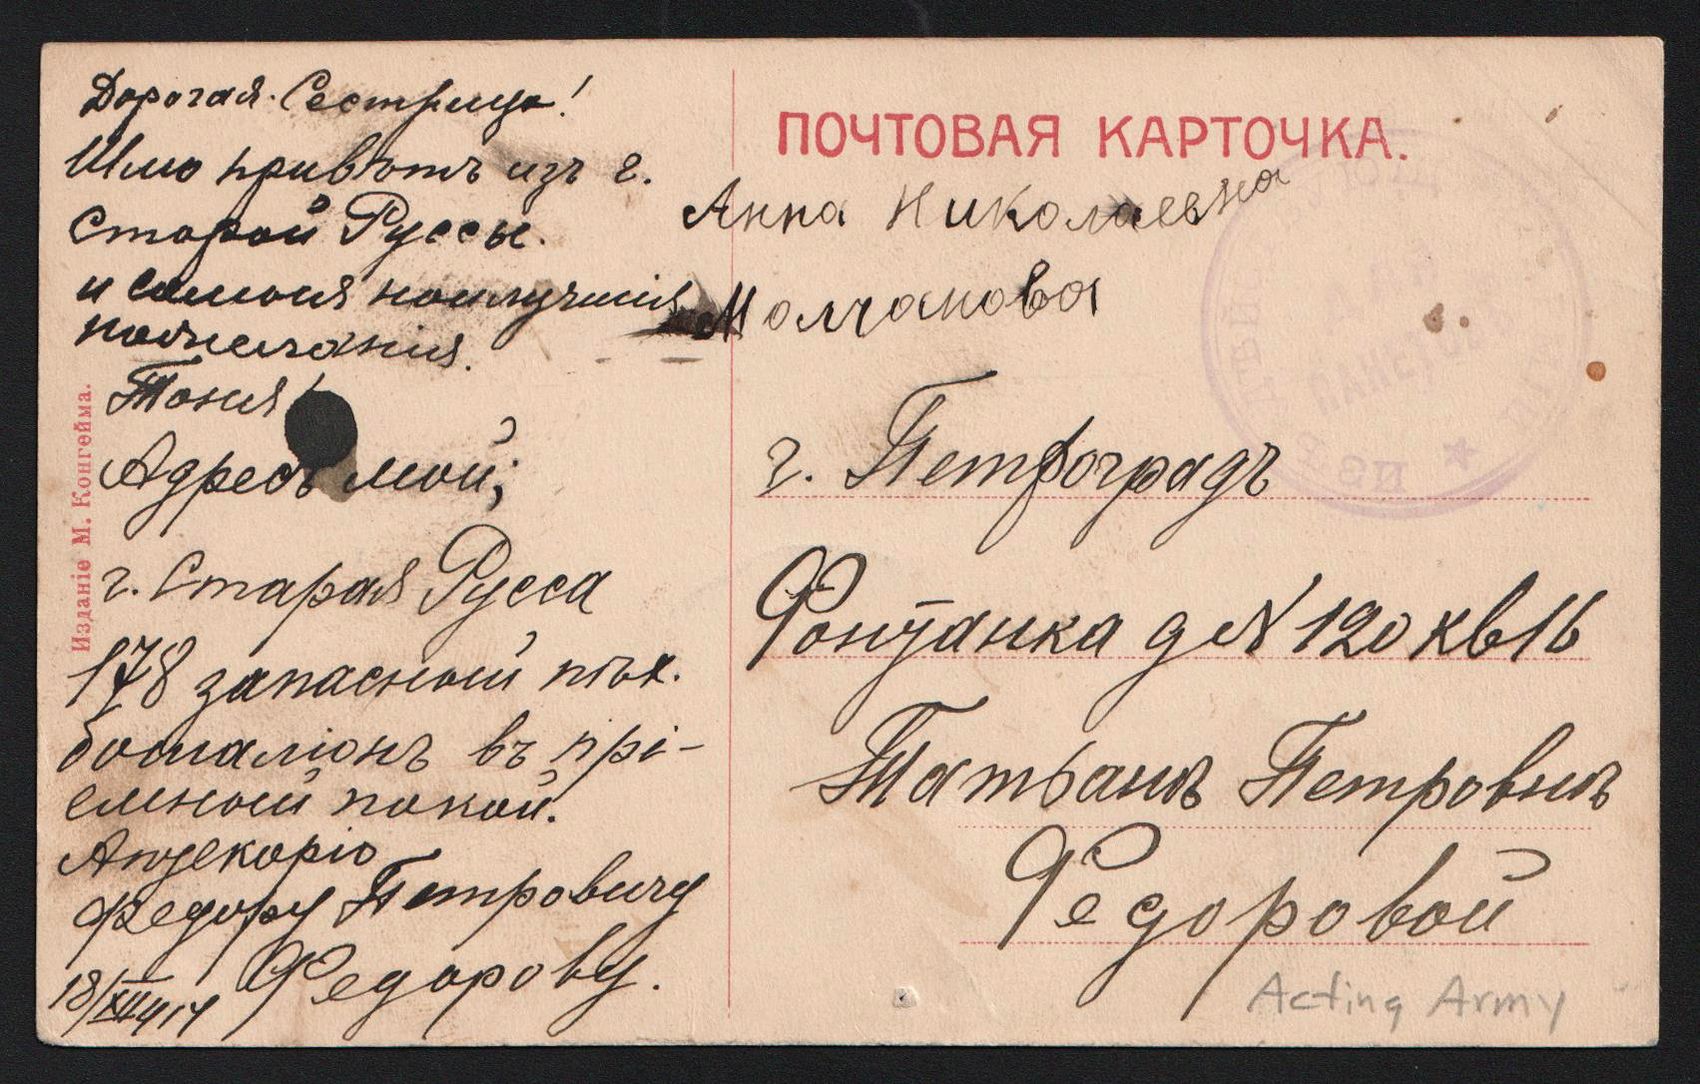 Дорогая Сестрица!
Шлю привѣтъ изъ г.
Старой Руссы.
и самыя наилучшія
пожеланія.
Тоня!
Адресъ мой;
г. Старая Русса
178 запасный пѣх.
баталіонъ въ прі-
емный покой.
Аптекарю
Федору Петровичу
Федорову.
18/XII
Изданіе М. Конгейма.
ПОЧТОВАЯ КАРТОЧКА.
Анна Николаевна
Молчанова
г. Петроградъ
Фонтанка д № 120 кв 16
Татьянѣ Петровнѣ
Федоровой
Acting Army
ИЗЪ